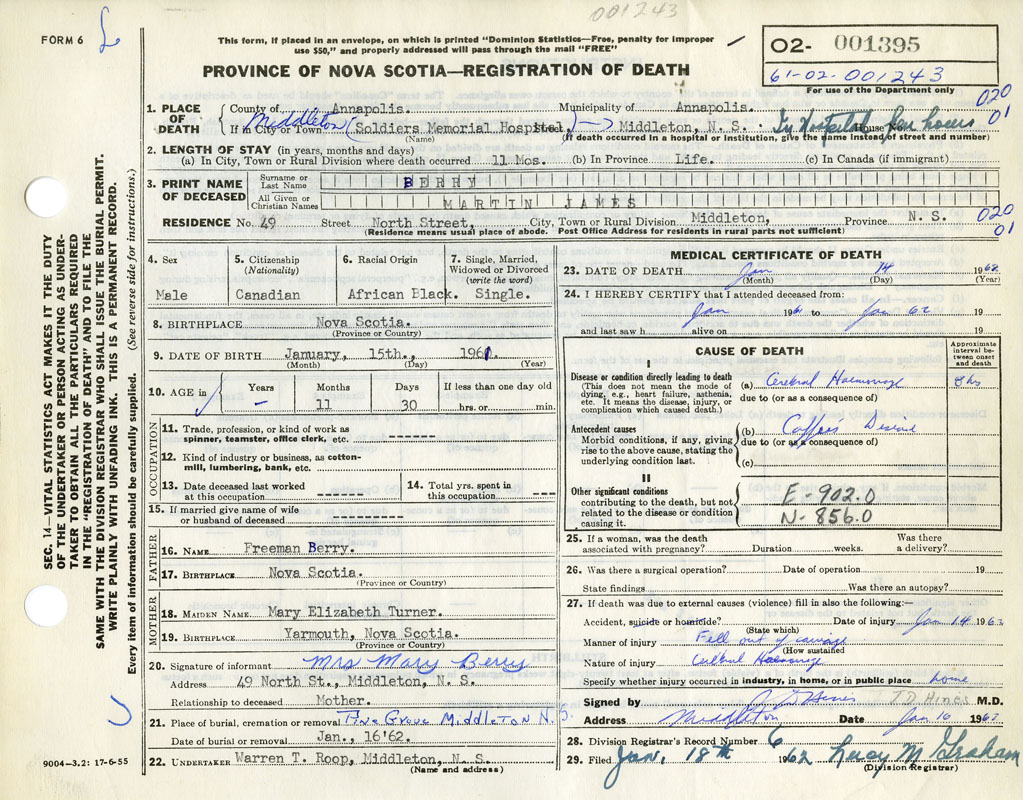 001243
FORM 6
This form, if placed in an envelope, on which is printed "Dominion Statistics—Free, penalty for improper
use $50," and properly addressed will pass through the mail "FREE"
PROVINCE OF NOVA SCOTIA—REGISTRATION OF DEATH
02- 001395
61-02-001243
For use of the Department only
020
01
1. PLACE OF DEATH
County of Annapolis. Municipality of Annapolis.
If in City or Town Middleton (Soldiers Memorial Hospital.) Middleton, N. S. In Hospital few hours
(Name) (If death occurred in a hospital or institution, give the name instead of street and number)
2. LENGTH OF STAY (in years, months and days)
(a) In City, Town or Rural Division where death occurred 11 Mos. (b) In Province Life. (c) In Canada (if immigrant)
3. PRINT NAME OF DECEASED
Surname or Last Name BERRY
All Given or Christian Names MARTIN JAMES
RESIDENCE No. 49 Street North Street, City, Town or Rural Division Middleton, Province N. S.
(Residence means usual place of abode. Post Office Address for residents in rural parts not sufficient)
020
01
4. Sex
Male
5. Citizenship
(Nationality)
Canadian
6. Racial Origin
African Black.
7. Single, Married,
Widowed or Divorced
(write the word)
Single.
8. BIRTHPLACE Nova Scotia.
(Province or Country)
9. DATE OF BIRTH January, 15th., 1961.
(Month) (Day) (Year)
10. AGE in
Years Months Days If less than one day old
– 11 30 hrs. or min.
OCCUPATION
11. Trade, profession, or kind of work as
spinner, teamster, office clerk, etc. ------
12. Kind of industry or business, as cotton-
mill, lumbering, bank, etc. ------
13. Date deceased last worked
at this occupation ------
14. Total yrs. spent in
this occupation ------
15. If married give name of wife
or husband of deceased ------
FATHER
16. NAME Freeman Berry.
17. BIRTHPLACE Nova Scotia.
(Province or Country)
MOTHER
18. MAIDEN NAME Mary Elizabeth Turner.
19. BIRTHPLACE Yarmouth, Nova Scotia.
(Province or Country)
20. Signature of informant Mrs Mary Berry
Address 49 North St., Middleton, N. S.
Relationship to deceased Mother.
21. Place of burial, cremation or removal Pine Grove Middleton N.S.
Date of burial or removal Jan., 16'62.
22. UNDERTAKER Warren T. Roop, Middleton, N. S.
(Name and address)
MEDICAL CERTIFICATE OF DEATH
23. DATE OF DEATH Jan 14 1962
(Month) (Day) (Year)
24. I HEREBY CERTIFY that I attended deceased from:
Jan 1961 to Jan 62 19
and last saw h alive on 19
CAUSE OF DEATH
Approximate
interval be-
tween onset
and death
I
Disease or condition directly leading to death
(This does not mean the mode of
dying, e.g., heart failure, asthenia,
etc. It means the disease, injury, or
complication which caused death.)
(a) Cerebral Haemorrhage hrs
due to (or as a consequence of)
Antecedent causes
Morbid conditions, if any, giving
rise to the above cause, stating the
underlying condition last.
(b) Disease
due to (or as a consequence of)
(c)
II
Other significant conditions
contributing to the death, but not
related to the disease or condition
causing it.
E-902.0
N-856.0
25. If a woman, was the death
associated with pregnancy? Duration weeks. Was there
a delivery?
26. Was there a surgical operation? Date of operation 19
State findings Was there an autopsy?
27. If death was due to external causes (violence) fill in also the following:—
Accident, suicide or homicide? Date of injury Jan 14 1962
(State which)
Manner of injury Fell out of carriage
(How sustained
Nature of injury Cerebral Haemorrhage
Specify whether injury occurred in industry, in home, or in public place home
Signed by J D Hines J.D. Hines M.D.
Address Middleton Date Jan 16 1962
28. Division Registrar's Record Number 6
29. Filed Jan. 18th 1962 Lucy M Graham
(Division Registrar)
SEC. 14—VITAL STATISTICS ACT MAKES IT THE DUTY
OF THE UNDERTAKER OR PERSON ACTING AS UNDER-
TAKER TO OBTAIN ALL THE PARTICULARS REQUIRED
IN THE "REGISTRATION OF DEATH" AND TO FILE THE
SAME WITH THE DIVISION REGISTRAR WHO SHALL ISSUE THE BURIAL PERMIT.
WRITE PLAINLY WITH UNFADING INK. THIS IS A PERMANENT RECORD.
Every item of information should be carefully supplied. (See reverse side for instructions.)
9004-3.2: 17-6-55